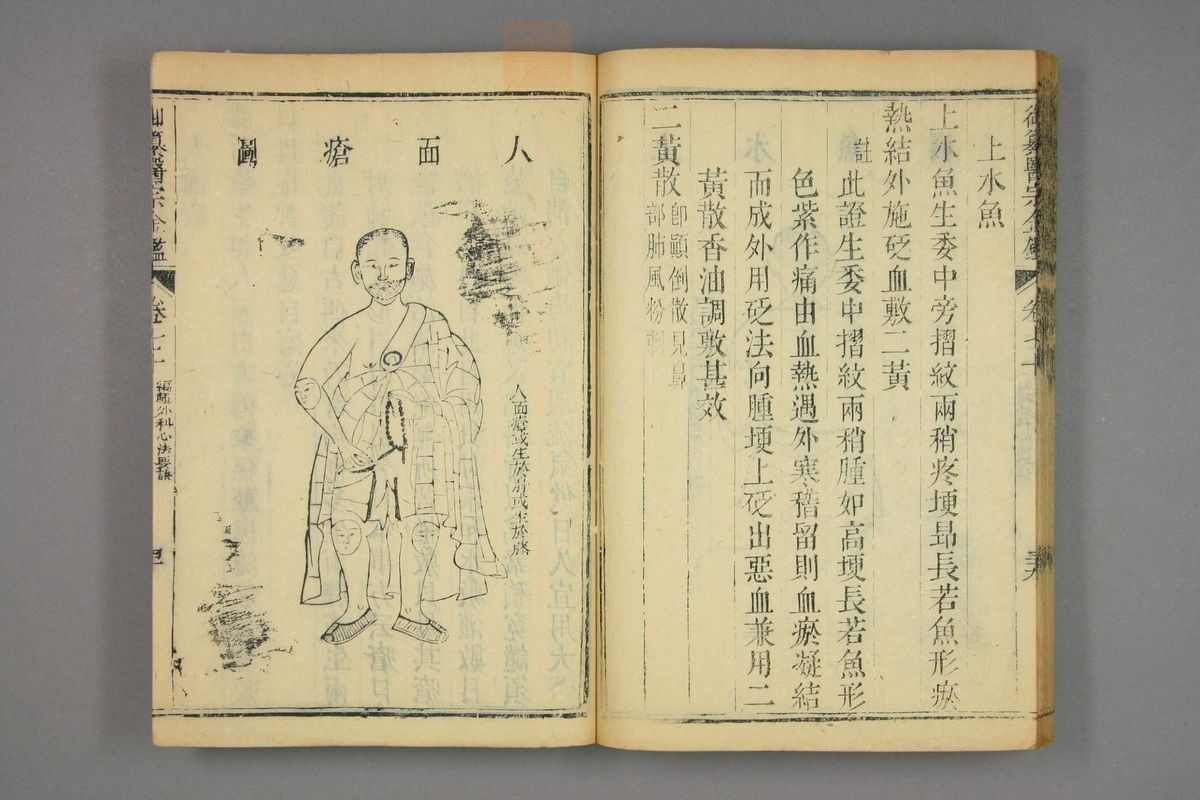 上水魚
上水魚生委中旁摺紋兩稍疼埂昂長若魚形瘀
熱結外施砭血敷二黃
註此證生委中摺紋兩稍腫如高埂長若魚形
色紫作痛由血熱遇外寒稽留則血瘀凝結
而成外用砭法向腫埂上砭出惡血兼用二
黃散香油調敷甚效
二黃散即顧倒散見鼻
部肺風粉刺
人面瘡圖
人面瘡或生於肘或生於膝
御纂醫宗金鑑
編輯外科心法要訣